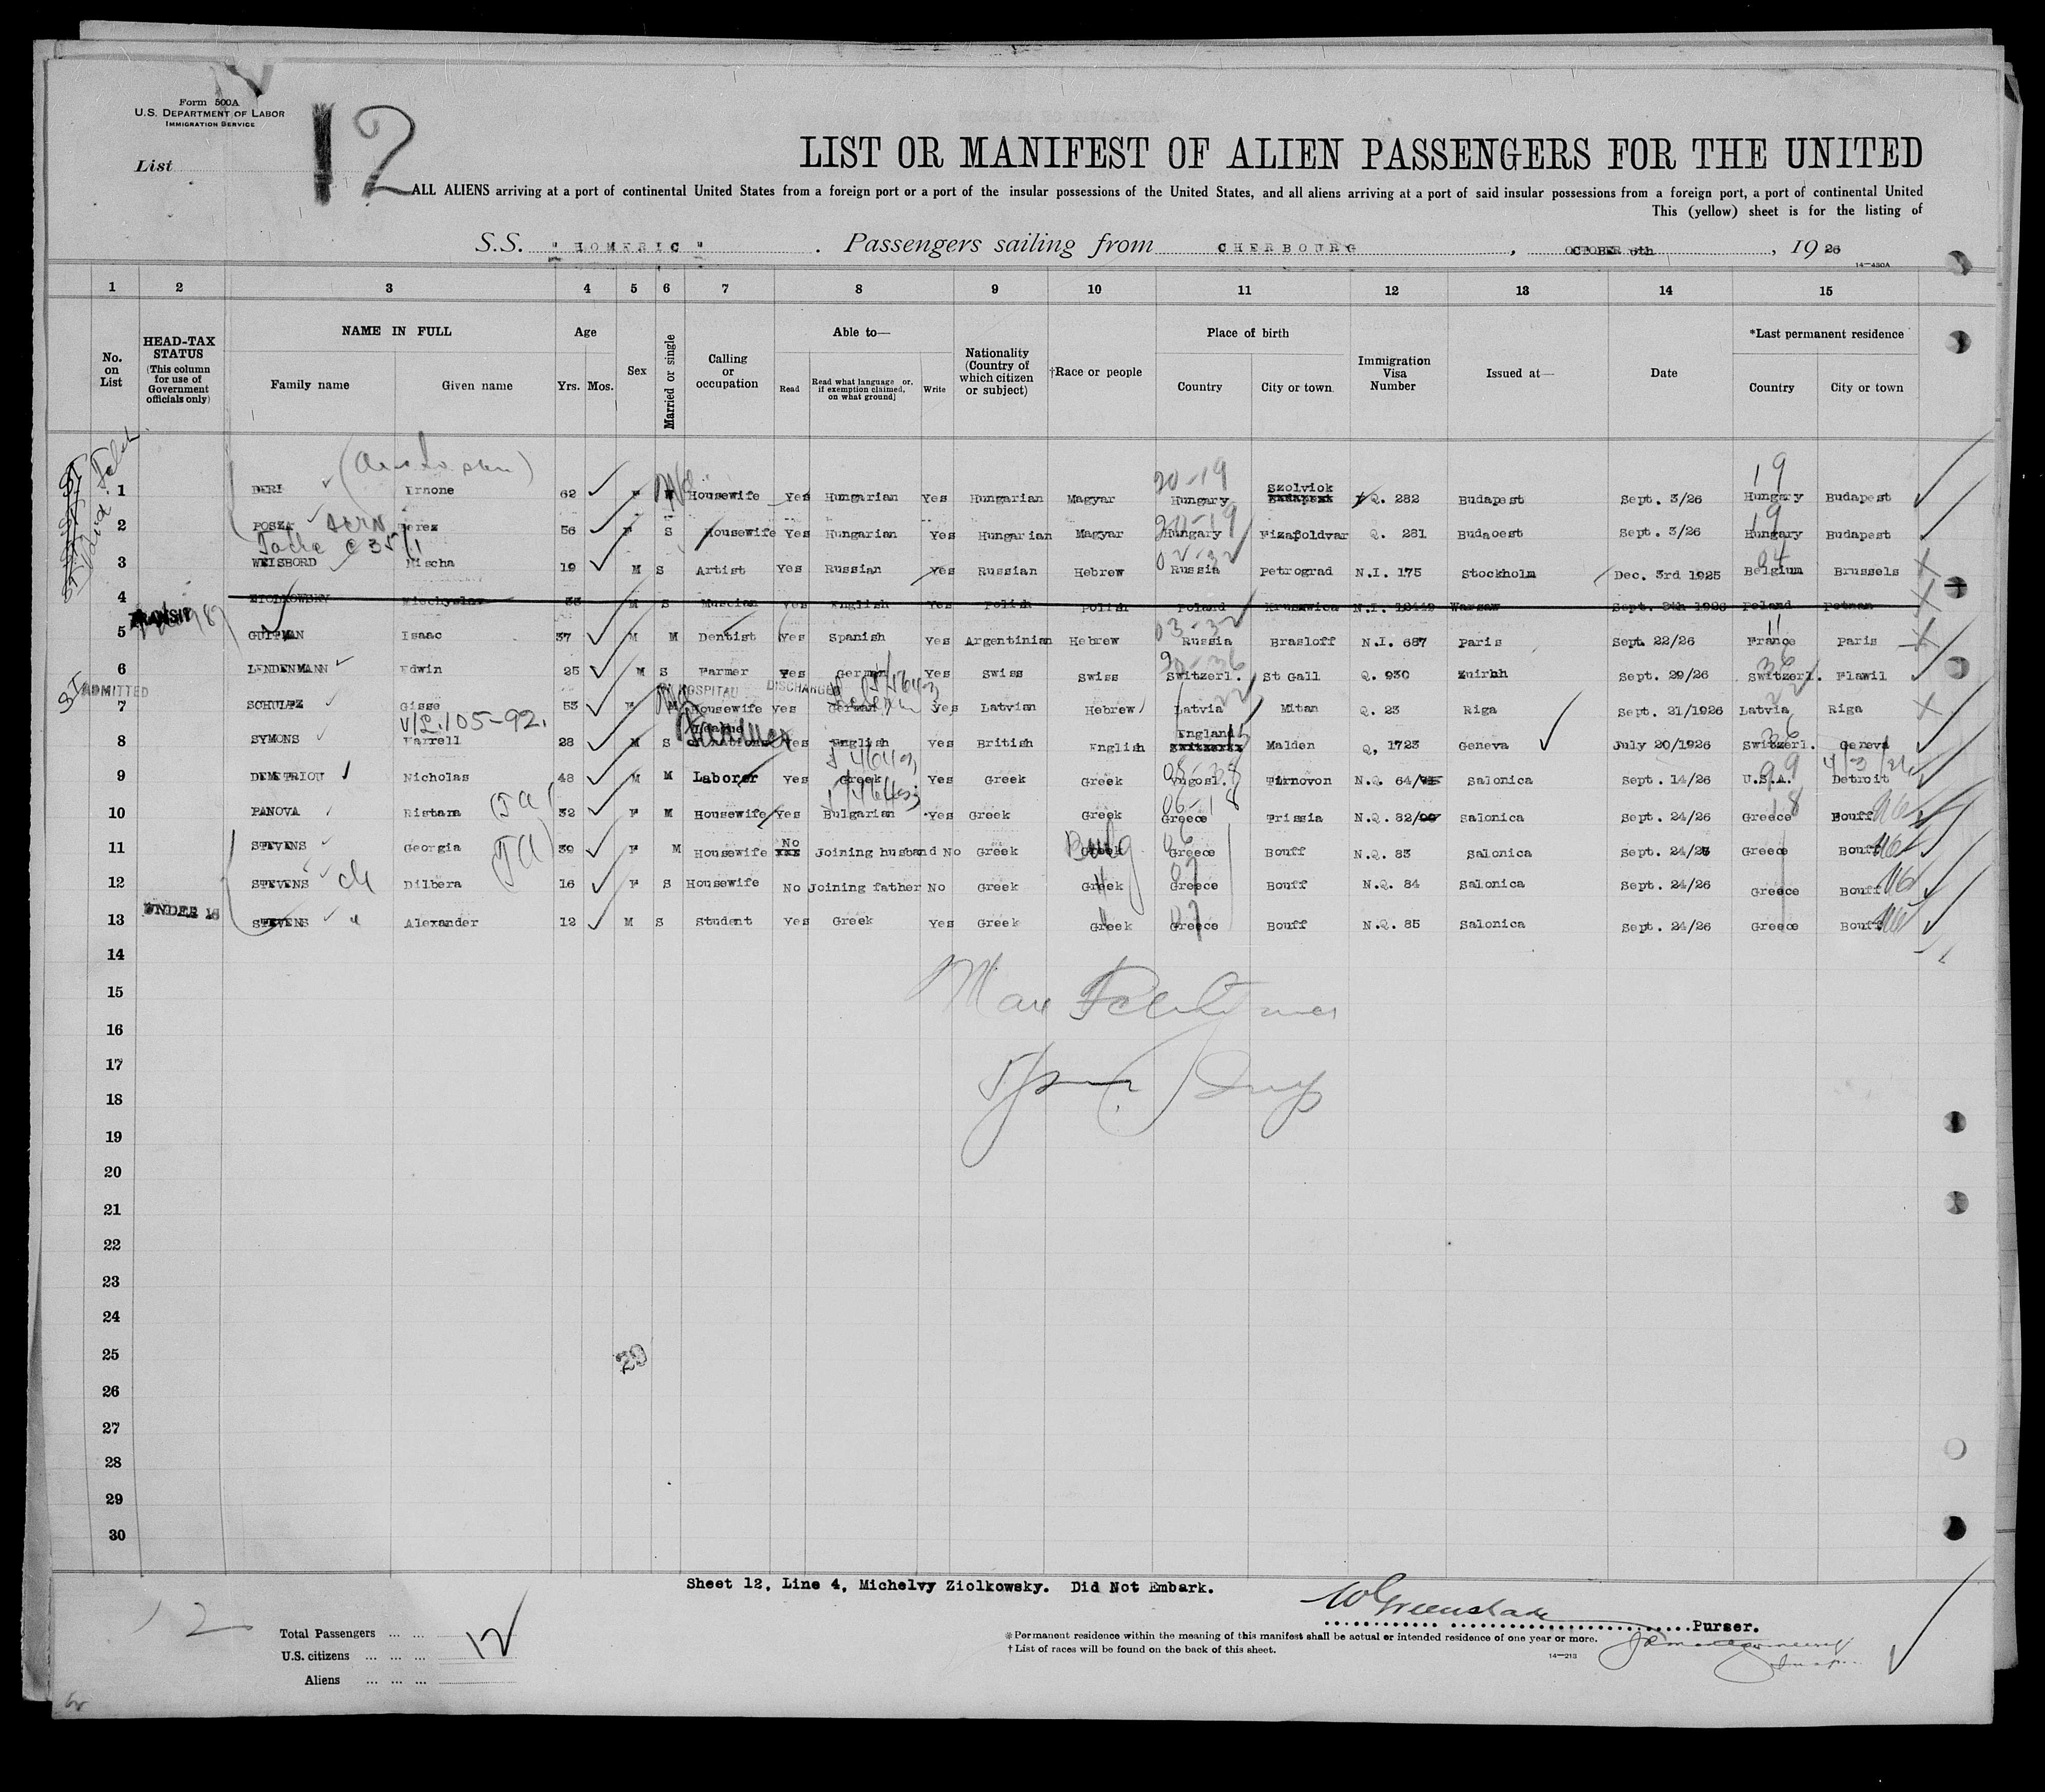 Form 500A
U.S. DEPARTMENT OF LABOR
IMMIGRATION SERVICE
List 12
LIST OR MANIFEST OF ALIEN PASSENGERS FOR THE UNITED
ALL ALIENS arriving at a port of continental United States from a foreign port or a port of the insular possessions of the United States, and all aliens arriving at a port of said insular possessions from a foreign port, a port of continental United
This (yellow) sheet is for the listing of
S.S. "HOMERIC". Passengers sailing from CHERBOURG, OCTOBER 6th, 1926
14—430A
1 2 3 4 5 6 7 8 9 10 11 12 13 14 15
No. on List
HEAD-TAX STATUS (This column for use of Government officials only)
NAME IN FULL Family name Given name
Age Yrs. Mos.
Sex
Married or single
Calling or occupation
Able to— Read Read what language or, if exemption claimed, on what ground] Write
Nationality (Country of which citizen or subject)
†Race or people
Place of birth Country City or town
Immigration Visa Number
Issued at—
Date
*Last permanent residence Country City or town
20-19 Szolviok 19
1 DERI Irnone 62 F Housewife Yes Hungarian Yes Hungarian Magyar Hungary Budapest Q. 282 Budapest Sept. 3/26 Hungary Budapest
20-19 19
2 POSZA Terez 56 F S Housewife Yes Hungarian Yes Hungarian Magyar Hungary Fizafoldvar Q. 281 Budaoest Sept. 3/26 Hungary Budapest
02-32
3 WEISBORD Mischa 19 M S Artist Yes Russian Yes Russian Hebrew Russia Petrograd N.I. 175 Stockholm Dec. 3rd 1925 Belgium Brussels
4 ZIOLKOWSKY Miechyslav 33 M S Muscian Yes English Yes Polish Polish Poland Kruswica N.I. 12449 Warsaw Sept. 24h 1926 Poland Potnan
TRANSIT 03-32 11
5 GUTMAN Isaac 37 M M Dentist Yes Spanish Yes Argentinian Hebrew Russia Brasloff N.I. 687 Paris Sept. 22/26 France Paris
36
6 LENDENMANN Edwin 25 M S Farmer Yes German Yes Swiss Swiss Switzerl. St Gall Q. 930 Zuirhh Sept. 29/26 Switzerl. Flawil
ADMITTED IN HOSPITAL DISCHARGED
7 SCHULTZ Gisse 53 F M Housewife Yes German Yes Latvian Hebrew Latvia Mitan Q. 23 Riga Sept. 21/1926 Latvia Riga
V/L.105-92. England
8 SYMONS Farrell 28 M S Yes English Yes British English Malden Q, 1723 Geneva July 20/1926 Switzerl. Geneva
9 DEMETRIOU Nicholas 48 M M Laborer Yes Greek Yes Greek Greek Yugosl. Tirnovon N.Q. 64/ Salonica Sept. 14/26 U.S.A. Detroit
06-18
10 PANOVA Ristana 32 F M Housewife Yes Bulgarian Yes Greek Greek Greece Frissia N.Q. 82/ Salonica Sept. 24/26 Greece Bouff
11 STEVENS Georgia 39 F M Housewife No Joining husband No Greek Bulg Greece Bouff N.Q. 83 Salonica Sept. 24/26 Greece Bouff
12 STEVENS Dilbera 16 F S Housewife No Joining father No Greek Greek Greece Bouff N.Q. 84 Salonica Sept. 24/26 Greece Bouff
UNDER 16
13 STEVENS Alexander 12 M S Student Yes Greek Yes Greek Greek Greece Bouff N.Q. 85 Salonica Sept. 24/26 Greece Bouff
14
15
16
17
18
19
20
21
22
23
24
25
29
26
27
28
29
30
Sheet 12, Line 4, Michelvy Ziolkowsky. Did Not Embark.
W Greenslade Purser.
12
Total Passengers ... ... 12
U.S. citizens ... ... ...
Aliens ... ... ...
※Permanent residence within the meaning of this manifest shall be actual or intended residence of one year or more.
†List of races will be found on the back of this sheet.
14—213